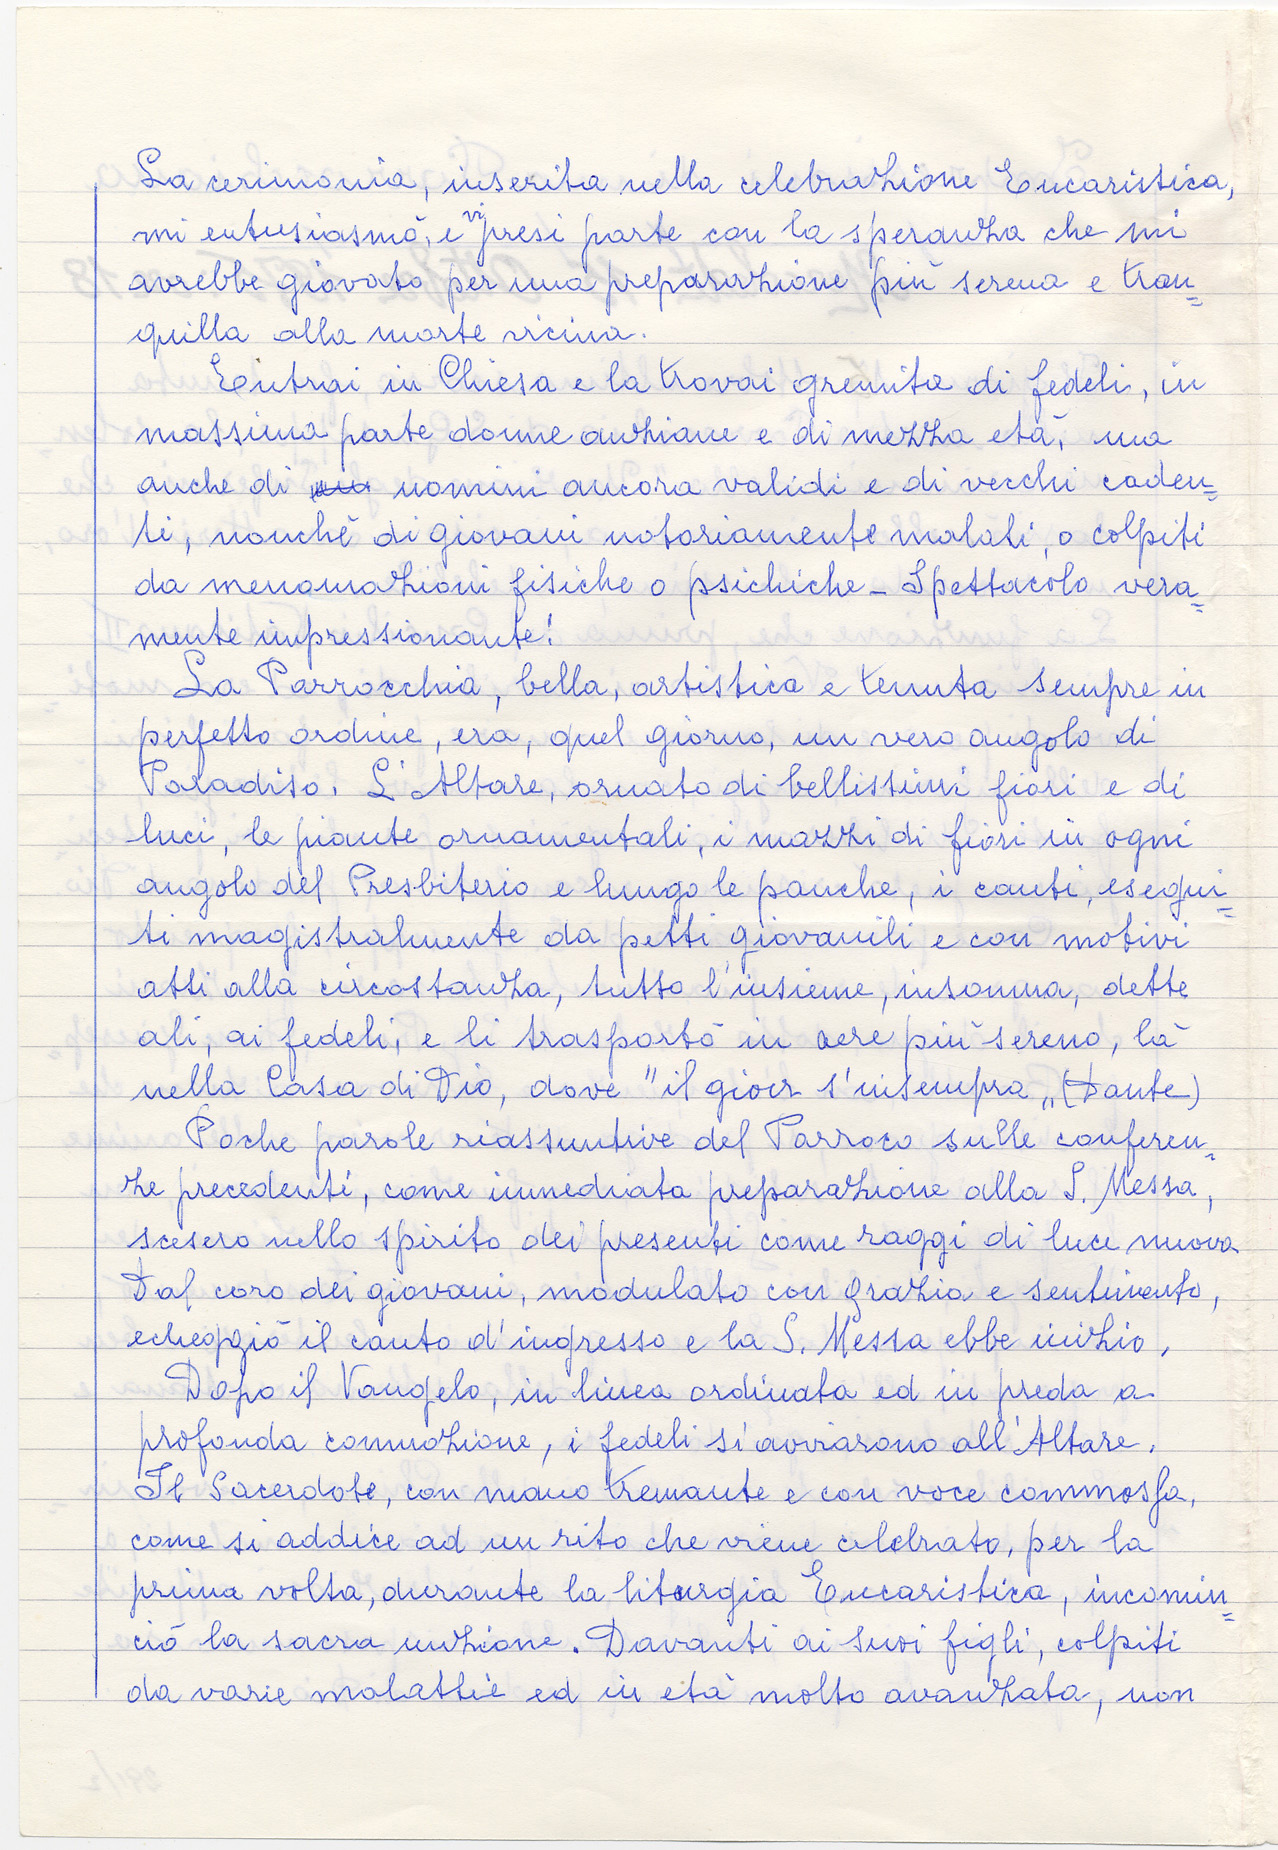 La cerimonia, inserita nella celebrazione Eucaristica,
mi entusiasmò, e vi presi parte con la speranza che mi
avrebbe giovato per una preparazione più serena e tran=
quilla alla morte vicina.
Entrai in Chiesa e la trovai gremita di fedeli, in
massima parte donne anziane e di mezza età, ma
anche di uomini ancora validi e di vecchi caden=
ti, nonchè di giovani notoriamente malati, o colpiti
da menomazioni fisiche o psichiche_ Spettacolo vera=
mente impressionante!
La Parrocchia, bella, artistica e tenuta sempre in
perfetto ordine, era, quel giorno, un vero angolo di
Paradiso. L'Altare, ornato di bellissimi fiori e di
luci, le piante ornamentali, i mazzi di fiori in ogni
angolo del Presbiterio e lungo le panche, i canti, esegui=
ti magistralmente da petti giovanili e con motivi
atti alla circostanza, tutto l'insieme, insomma, dette
ali, ai fedeli, e li trasportò in aere più sereno, là
nella Casa di Dio, dove "il gioir s'insempra„ (Dante)
Poche parole riassuntive del Parroco sulle conferen=
ze precedenti, come immediata preparazione alla S. Messa,
scesero nello spirito dei presenti come raggi di luce nuova
Dal coro dei giovani, modulato con grazia e sentimento,
echeggiò il canto d'ingresso e la S. Messa ebbe inizio.
Dopo il Vangelo, in linea ordinata ed in preda a
profonda commozione, i fedeli si avviarono all'Altare.
Il Sacerdote, con mano tremante e con voce commossa,
come si addice ad un rito che viene celebrato, per la
prima volta, durante la liturgia Eucaristica, incomin=
ciò la sacra unzione. Davanti ai suoi figli, colpiti
da varie malattie ed in età molto avanzata, non